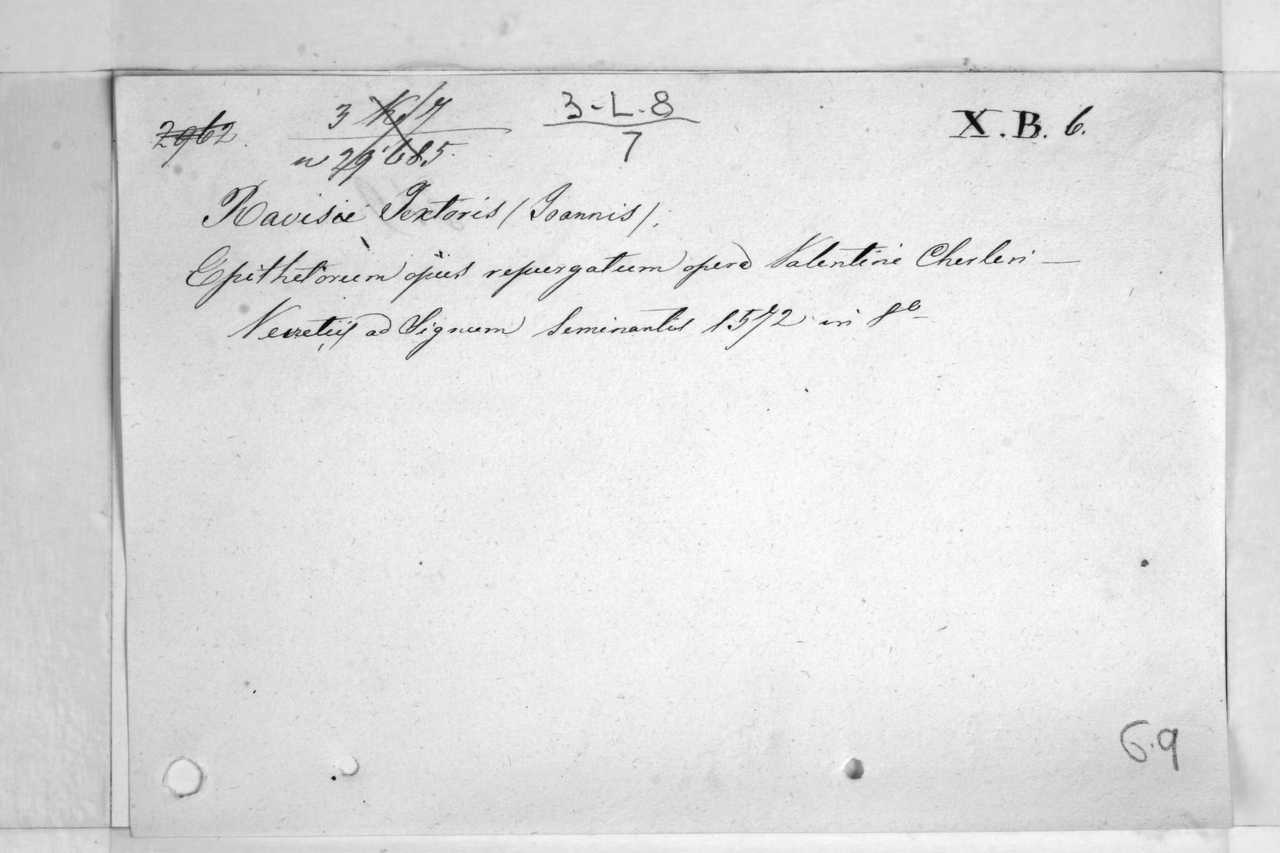 2962.
3 K. 7
n 29685.
3-L-8
7
X.B. 6.
Ravisii Textoris (Joannis).
Epithetorum opus repurgatum operâ Valentini Cherleri —
Venetiis ad Signum Seminantis 1572 in 8º
6.9